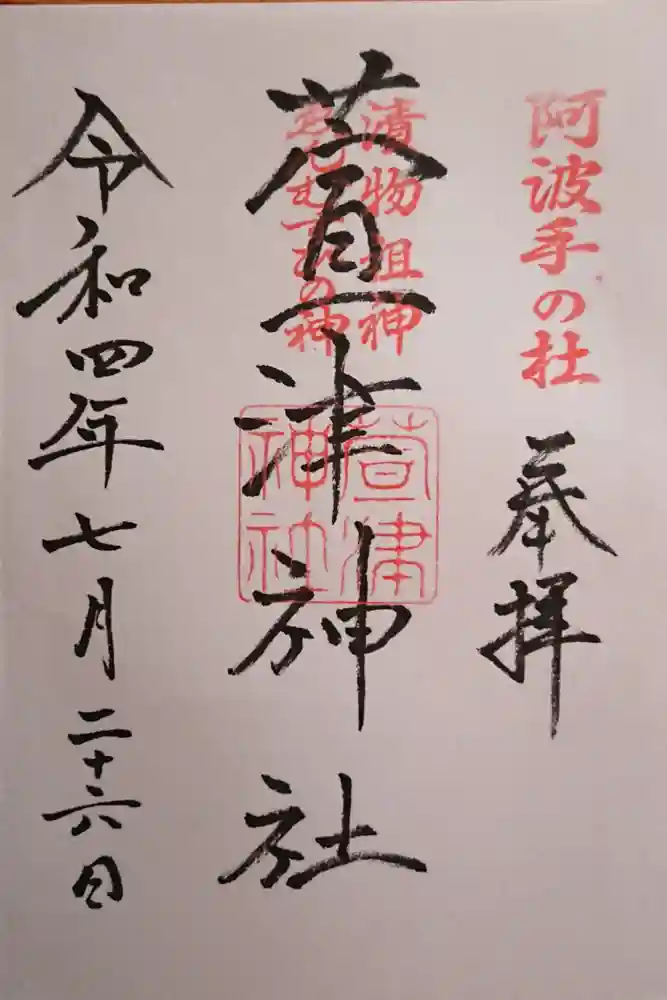 阿波手の杜
奉拝
漬物祖神
縁むすびの神
萱津神社
萱津
神社
令和四年七月二十六日